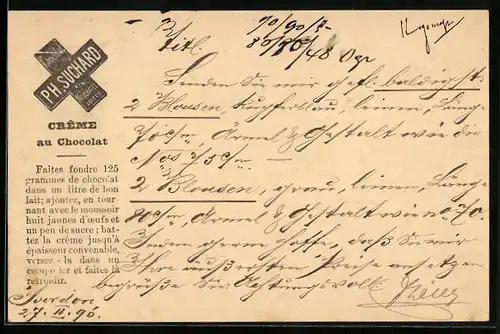 Chocolat
PH. SUCHARD
CRÊME
au Chocolat
Faites fondre 125
grammes de chocolat
dans un litre de bon
lait; ajoutez, en tour-
nant avec le moussoir
huit jaunes d'œufs et
un peu de sucre; bat-
tez la crême jusqu'à
épaisseur convenable,
versez-la dans un
compotier et faites la
refroidir.
Yverdon
27. II. 90.
Titl.
Senden Sie mir gefl. baldigst:
2 Blousen, leinen, Länge
70 c/m, Ärmel & Gestalt wie die
No 75 c/m
2 Blousen, grau, leinen, Länge
80 c/m, Ärmel & Gestalt wie No 70.
Indem gerne hoffe, daß Sie mir
Ihre äußersten Preise ansetzen
begrüße Sie Achtungsvoll